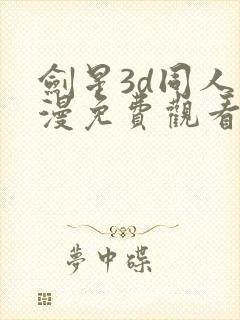 劍星3d同人
漫免費觀看
夢中碟